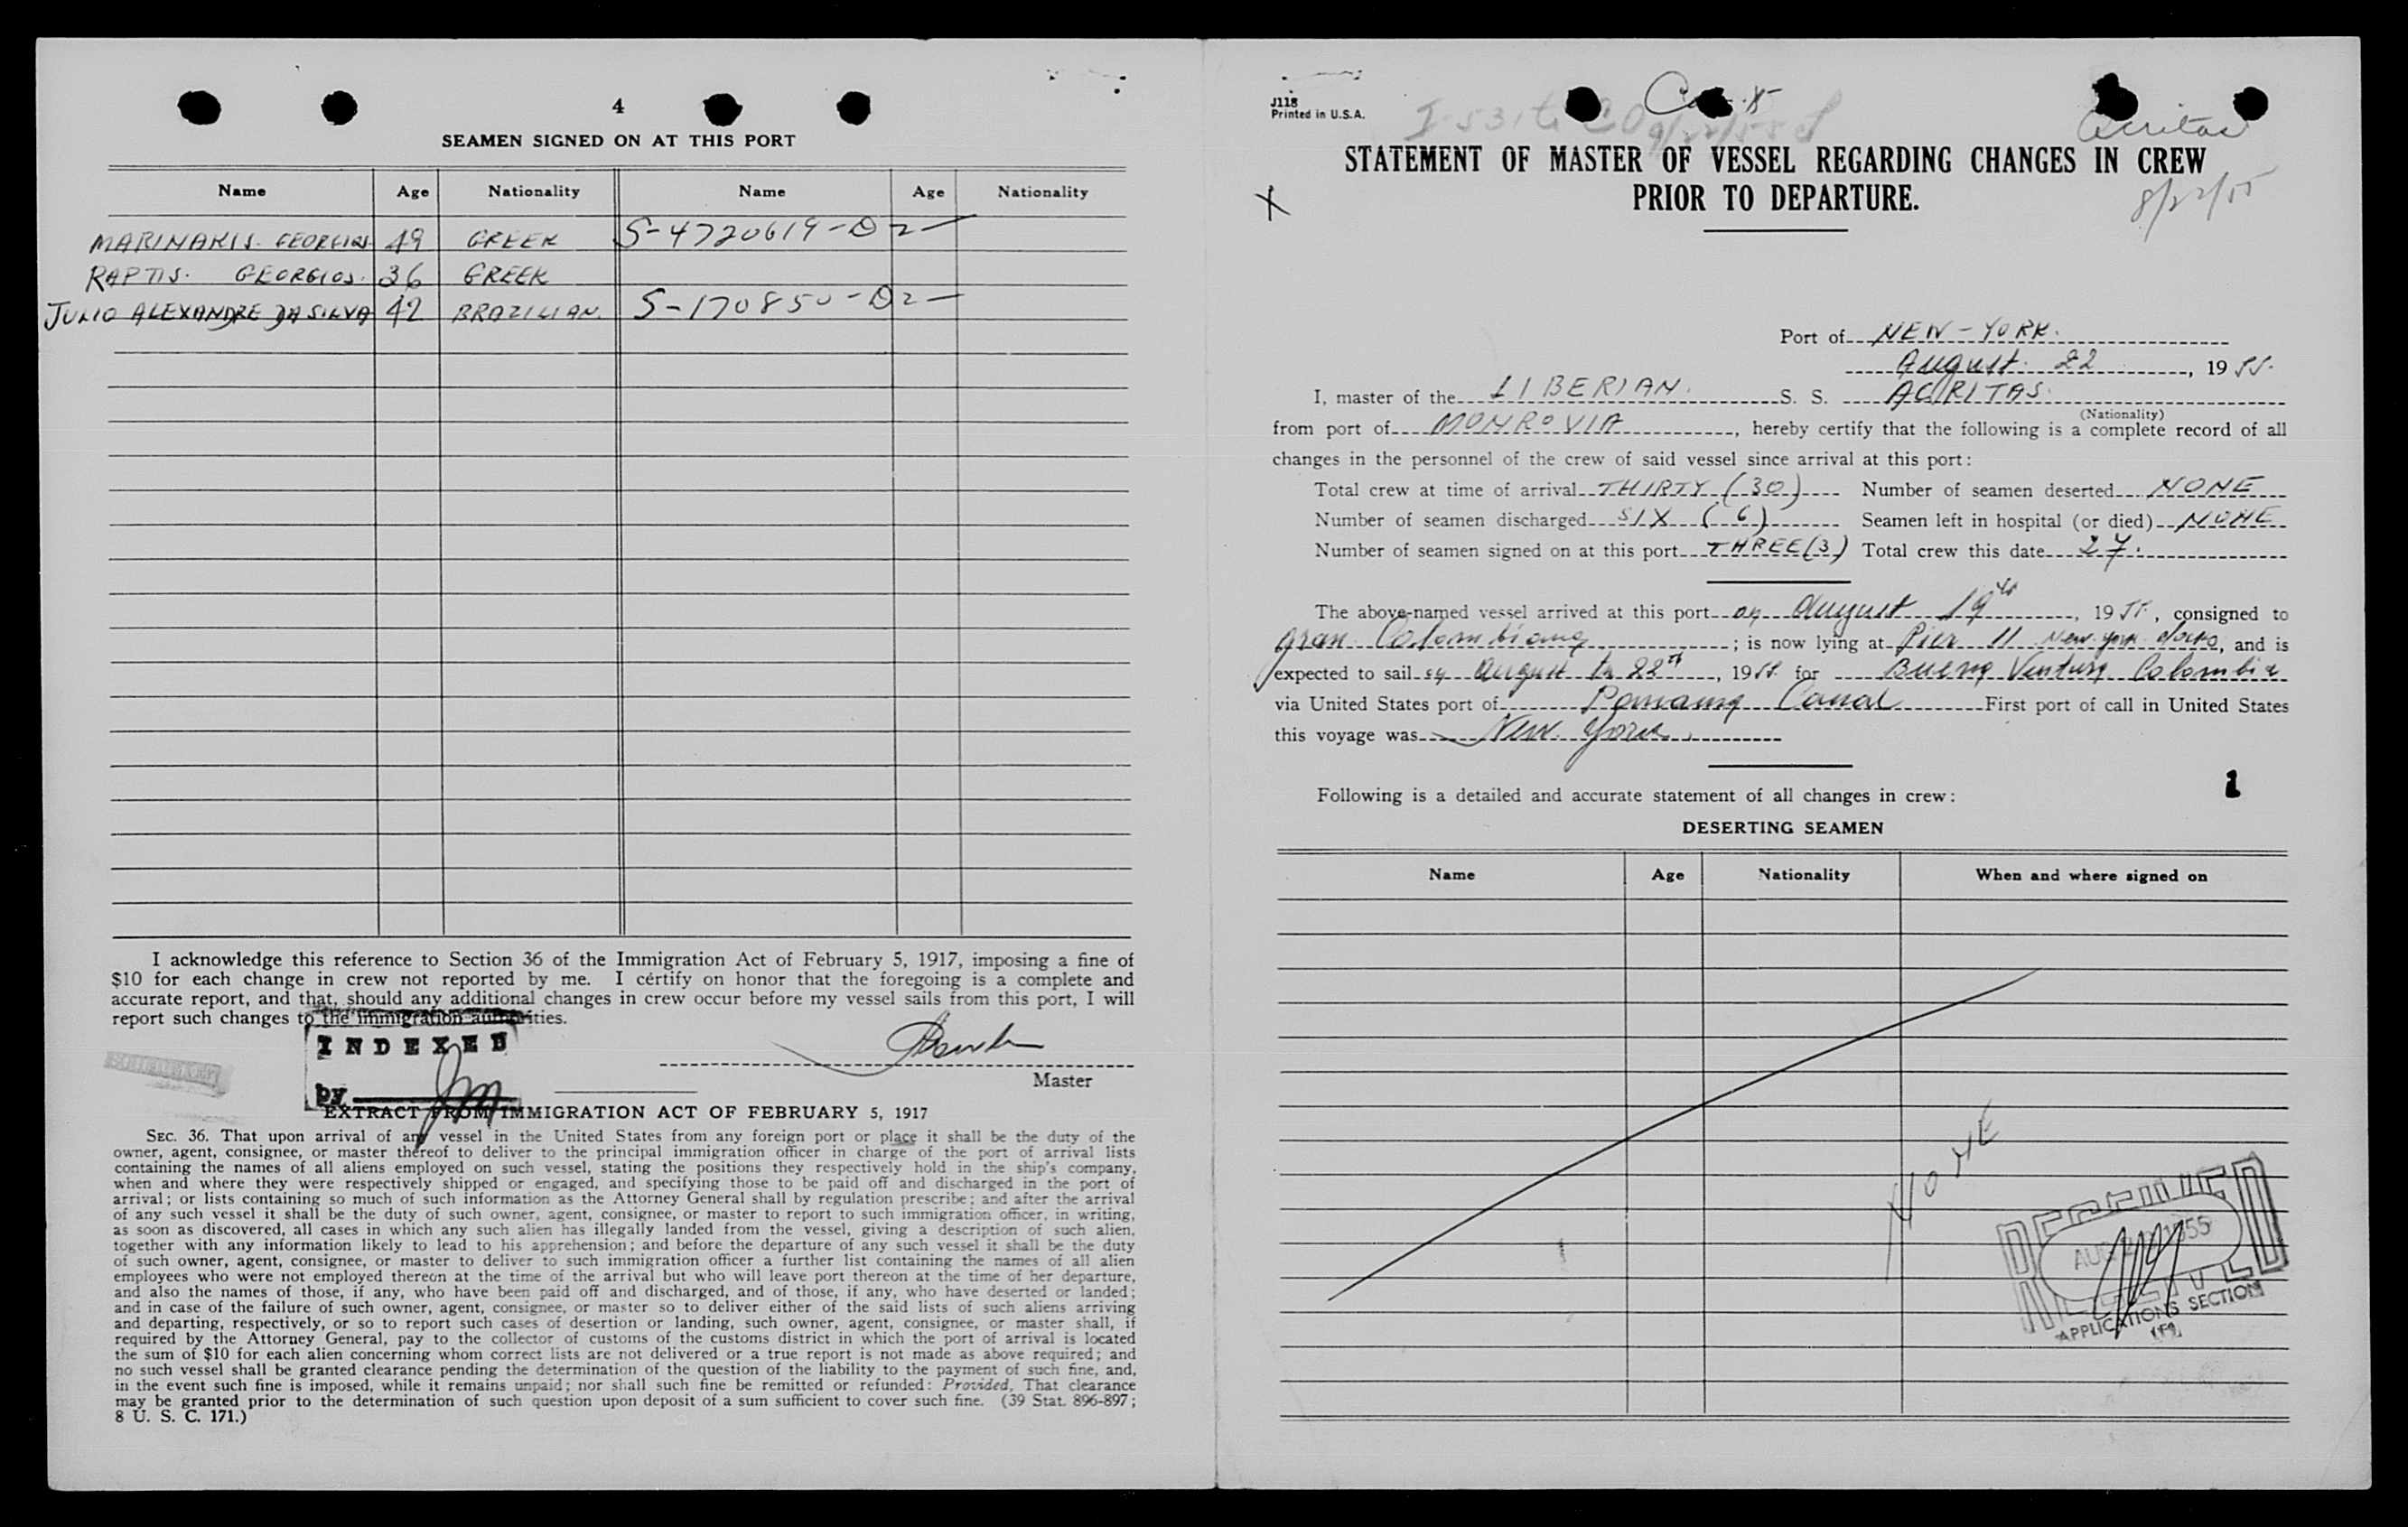 4
SEAMEN SIGNED ON AT THIS PORT
Name Age Nationality Name Age Nationality
MARINAKIS. GEORGIOS 49 GREEK S-4720619-D2-
RAPTIS. GEORGIOS. 36 GREEK
JULIO ALEXANDRE DA SILVA 42 BRAZILIAN. S-170850-D2-
I acknowledge this reference to Section 36 of the Immigration Act of February 5, 1917, imposing a fine of
$10 for each change in crew not reported by me. I certify on honor that the foregoing is a complete and
accurate report, and that, should any additional changes in crew occur before my vessel sails from this port, I will
report such changes to the immigration authorities.
INDEXED
by
Master
EXTRACT FROM IMMIGRATION ACT OF FEBRUARY 5, 1917
SEC. 36. That upon arrival of any vessel in the United States from any foreign port or place it shall be the duty of the
owner, agent, consignee, or master thereof to deliver to the principal immigration officer in charge of the port of arrival lists
containing the names of all aliens employed on such vessel, stating the positions they respectively hold in the ship's company,
when and where they were respectively shipped or engaged, and specifying those to be paid off and discharged in the port of
arrival; or lists containing so much of such information as the Attorney General shall by regulation prescribe; and after the arrival
of any such vessel it shall be the duty of such owner, agent, consignee, or master to report to such immigration officer, in writing,
as soon as discovered, all cases in which any such alien has illegally landed from the vessel, giving a description of such alien,
together with any information likely to lead to his apprehension; and before the departure of any such vessel it shall be the duty
of such owner, agent, consignee, or master to deliver to such immigration officer a further list containing the names of all alien
employees who were not employed thereon at the time of the arrival but who will leave port thereon at the time of her departure,
and also the names of those, if any, who have been paid off and discharged, and of those, if any, who have deserted or landed;
and in case of the failure of such owner, agent, consignee, or master so to deliver either of the said lists of such aliens arriving
and departing, respectively, or so to report such cases of desertion or landing, such owner, agent, consignee, or master shall, if
required by the Attorney General, pay to the collector of customs of the customs district in which the port of arrival is located
the sum of $10 for each alien concerning whom correct lists are not delivered or a true report is not made as above required; and
no such vessel shall be granted clearance pending the determination of the question of the liability to the payment of such fine, and,
in the event such fine is imposed, while it remains unpaid; nor shall such fine be remitted or refunded: Provided, That clearance
may be granted prior to the determination of such question upon deposit of a sum sufficient to cover such fine. (39 Stat. 896-897;
8 U. S. C. 171.)
J118
Printed in U.S.A.
Acritas
8/22/55
X
STATEMENT OF MASTER OF VESSEL REGARDING CHANGES IN CREW
PRIOR TO DEPARTURE.
Port of NEW-YORK.
August 22, 1955.
I, master of the LIBERIAN. S. S. ACRITAS.
(Nationality)
from port of MONROVIA, hereby certify that the following is a complete record of all
changes in the personnel of the crew of said vessel since arrival at this port:
Total crew at time of arrival THIRTY (30) Number of seamen deserted NONE
Number of seamen discharged SIX (6) Seamen left in hospital (or died) NONE
Number of seamen signed on at this port THREE (3) Total crew this date 27.
The above-named vessel arrived at this port on August 19th, 1955, consigned to
Gran Colombiana; is now lying at Pier 11 New York, and is
expected to sail on August 22nd, 1955 for Buena Ventura Colombia
via United States port of Panama Canal First port of call in United States
this voyage was New York.
Following is a detailed and accurate statement of all changes in crew:
1
DESERTING SEAMEN
Name Age Nationality When and where signed on
NONE
AUG 1955
APPLICATIONS SECTION